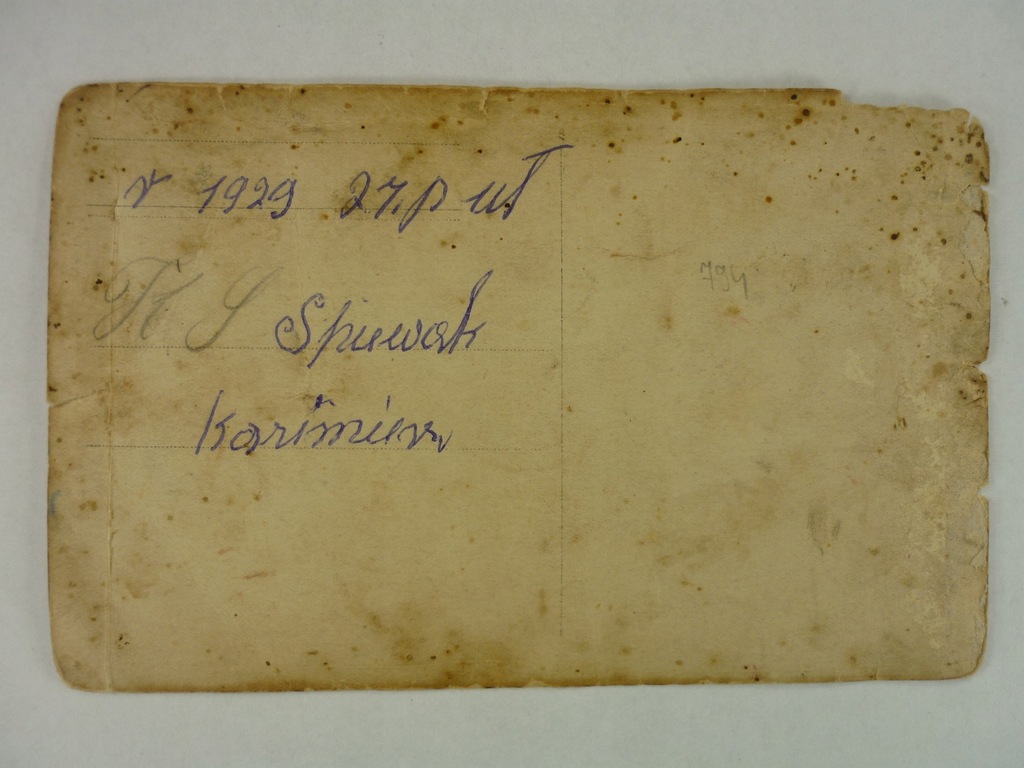 r 1929 27. p uł
K S Spiewak
Kazimierz
794